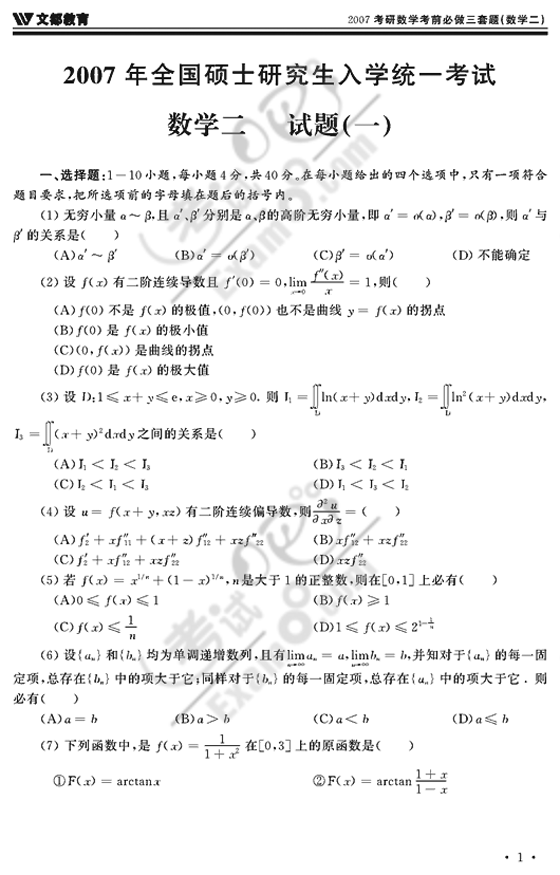 文都教育
2007 考研数学考前必做三套题(数学二)
2007 年全国硕士研究生入学统一考试
数学二 试题(一)
一、选择题:1-10小题,每小题4分,共40分。在每小题给出的四个选项中,只有一项符合
题目要求,把所选项前的字母填在题后的括号内。
(1) 无穷小量 α ~ β,且 α′、β′分别是 α、β的高阶无穷小量,即 α′ = o(α),β′ = o(β),则 α′与
β′的关系是( )
(A) α′ ~ β′ (B) α′ = o(β′) (C) β′ = o(α′) (D) 不能确定
(2) 设 f(x) 有二阶连续导数且 f′(0) = 0, lim x→0 f″(x)/x = 1,则( )
(A) f(0) 不是 f(x) 的极值,(0, f(0)) 也不是曲线 y = f(x) 的拐点
(B) f(0) 是 f(x) 的极小值
(C) (0, f(x)) 是曲线的拐点
(D) f(0) 是 f(x) 的极大值
(3) 设 D:1 ≤ x + y ≤ e, x ≥ 0, y ≥ 0. 则 I₁ = ∬D ln(x + y)dxdy, I₂ = ∬D ln²(x + y)dxdy,
I₃ = ∬D (x + y)²dxdy 之间的关系是( )
(A) I₁ < I₂ < I₃ (B) I₃ < I₂ < I₁
(C) I₂ < I₁ < I₃ (D) I₁ < I₃ < I₂
(4) 设 u = f(x + y, xz) 有二阶连续偏导数,则 ∂²u/∂x∂z = ( )
(A) f′₂ + xf″₁₁ + (x + z)f″₁₂ + xzf″₂₂ (B) xf″₁₂ + xzf″₂₂
(C) f′₂ + xf″₁₂ + xzf″₂₂ (D) xzf″₂₂
(5) 若 f(x) = x^(2/n) + (1 - x)^(2/n), n是大于 1 的正整数,则在[0,1] 上必有( )
(A) 0 ≤ f(x) ≤ 1 (B) f(x) ≥ 1
(C) f(x) ≤ 1/n (D) 1 ≤ f(x) ≤ 2^(1-1/n)
(6) 设{aₙ} 和{bₙ} 均为单调递增数列,且有 lim n→∞ aₙ = a, lim n→∞ bₙ = b,并知对于{aₙ} 的每一固
定项,总存在{bₙ} 中的项大于它;同样对于{bₙ} 的每一固定项,总存在{aₙ} 中的项大于它. 则
必有( )
(A) a = b (B) a > b (C) a < b (D) a ≤ b
(7) 下列函数中,是 f(x) = 1/(1 + x²) 在[0,3] 上的原函数是( )
①F(x) = arctanx ②F(x) = arctan (1 + x)/(1 - x)
· 1 ·